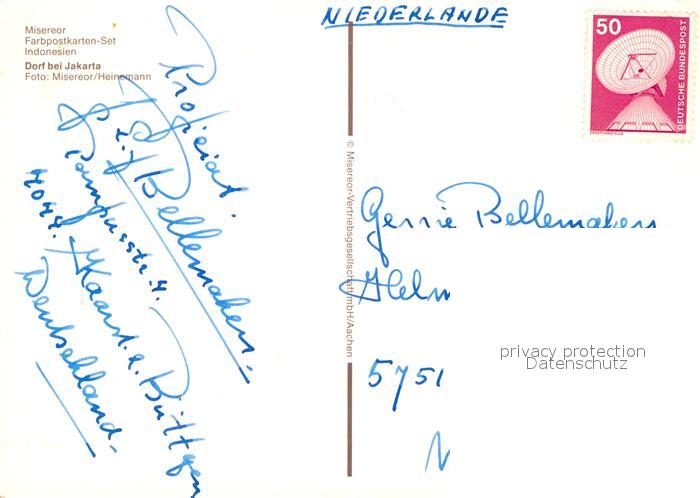 Misereor
Farbpostkarten-Set
Indonesien
Dorf bei Jakarta
Foto: Misereor/Heinemann
NIEDERLANDE
50
DEUTSCHE BUNDESPOST
ERDEFUNKSTELLE
© Misereor-Vertriebsgesellschaft mbH/Aachen
Proficiat.
Bellemakers
4044. Kaarst. 2. Büttgen
Deutschland.
Gerrie Bellemakers
5751
N
privacy protection
Datenschutz